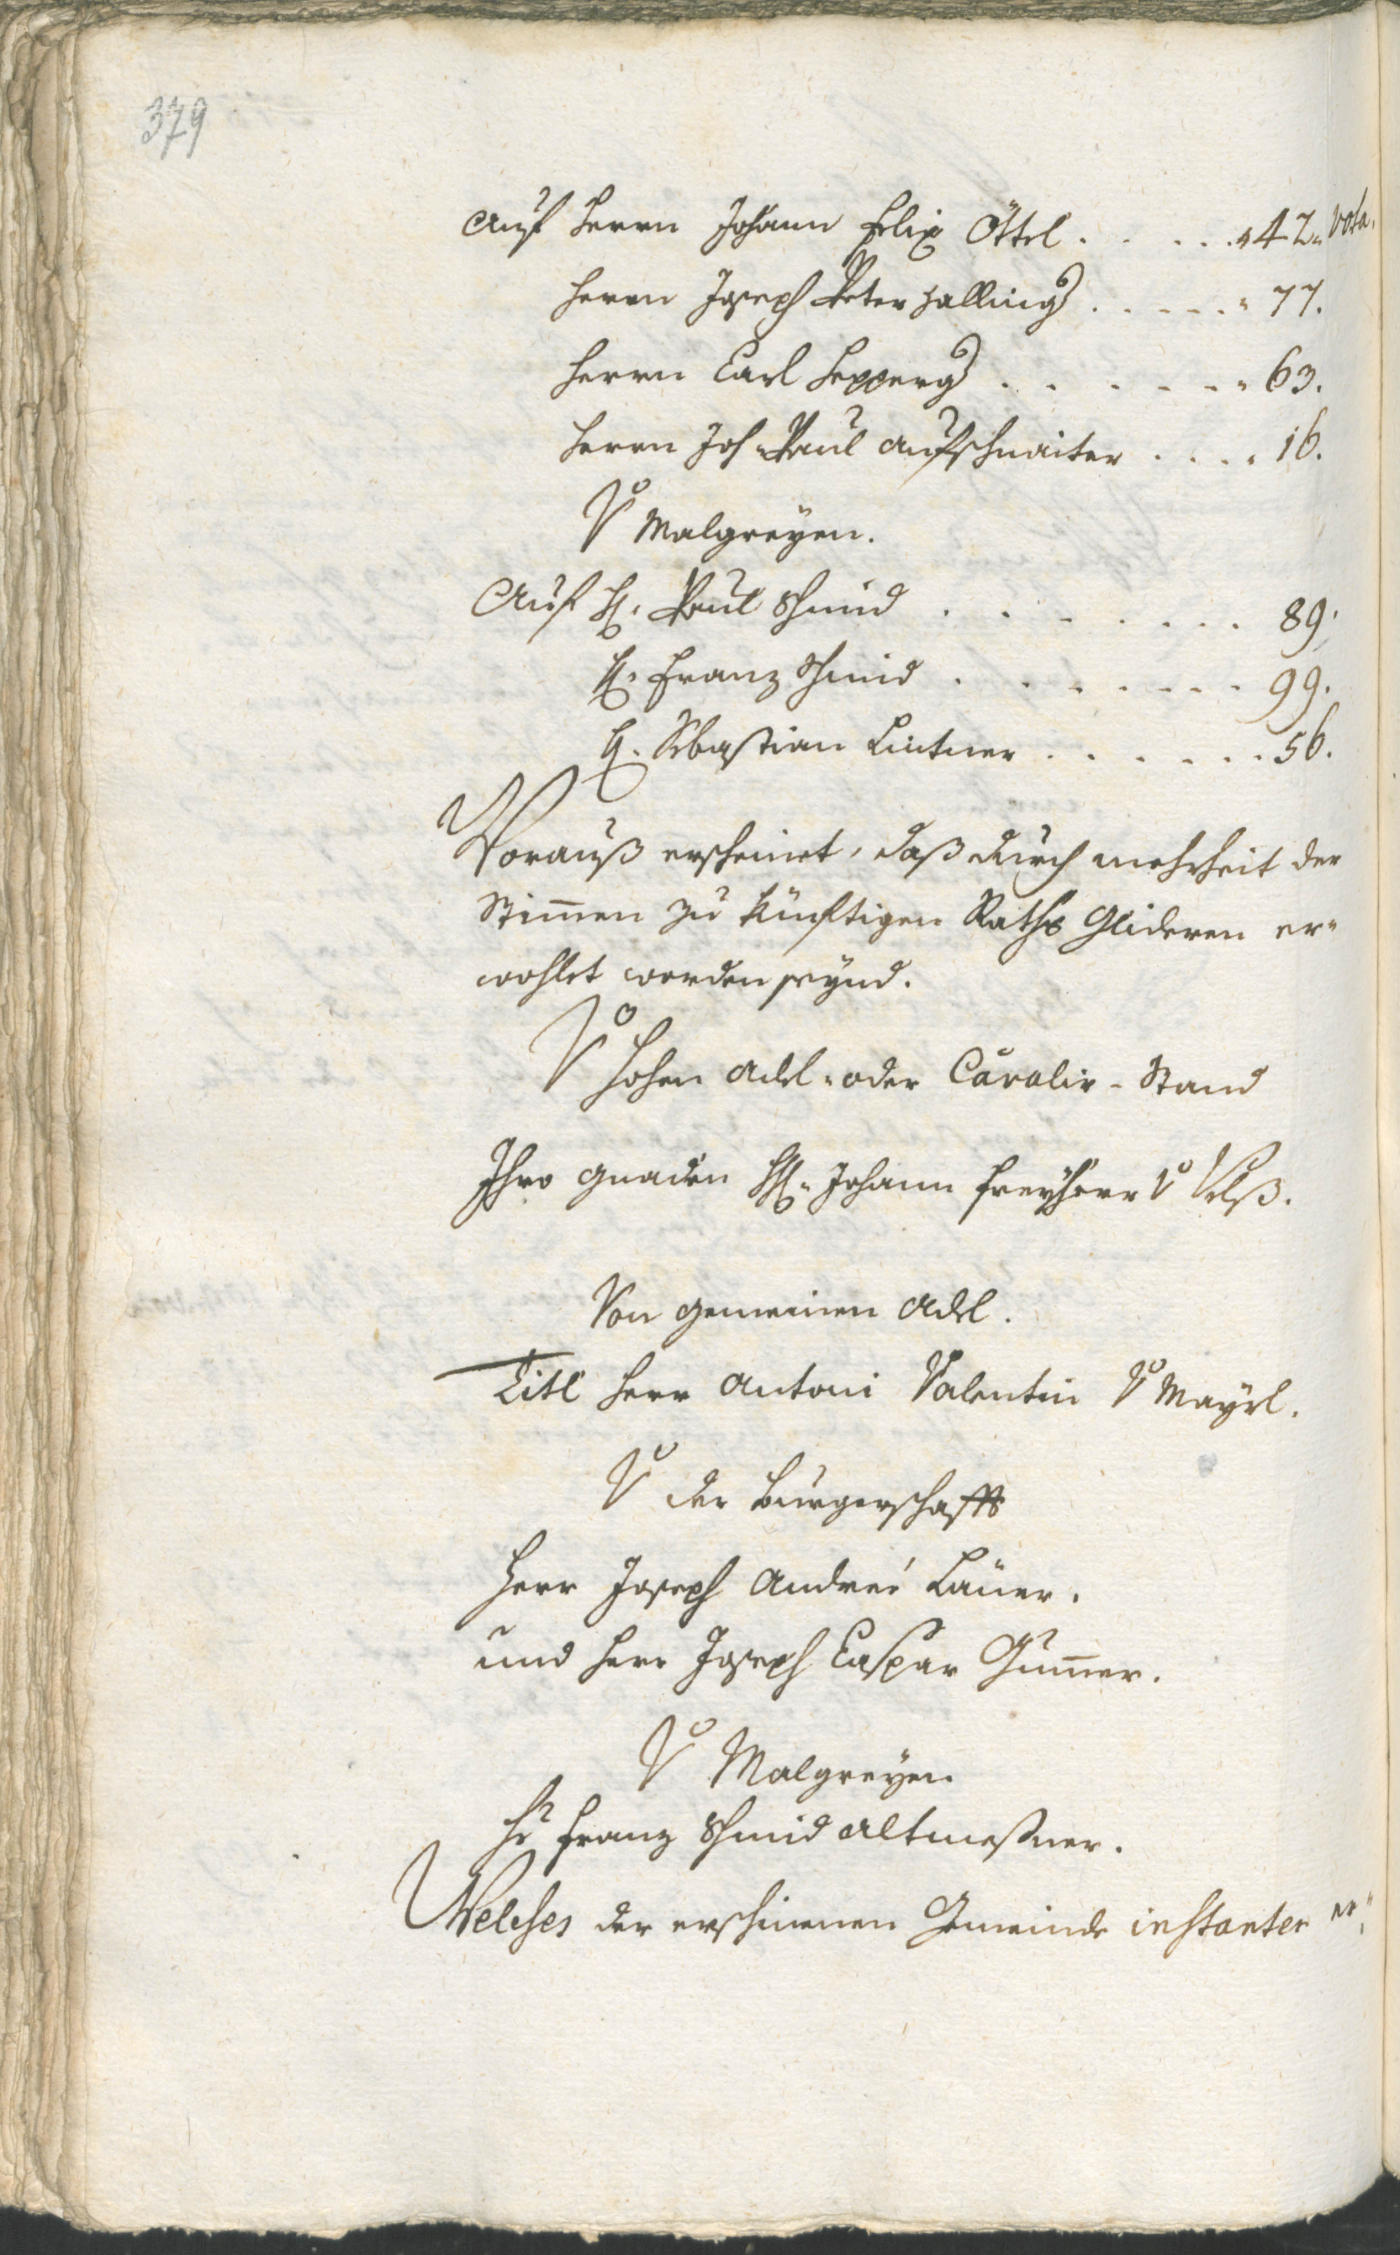 379
Auf Herrn Johann Felix Öttel . . . . . . 42. vota.
Herrn Joseph Peter Halling . . . . . . 77.
Herrn Carl Hepperg . . . . . . . 63.
Herrn Joh. Paul Aufschnaiter . . . . 16.
V Malgreyen.
Auf H. Paul Schmid . . . . . . . . 89.
H. Franz Schmid . . . . . . . . 99.
H. Sebastian Lintner . . . . . . . 56.
Worauß erscheinet, daß durch mehrheit der
Stimen zu künftigen Raths Glideren er-
wohlet worden seynd.
V Hohen Adel- oder Cavalir-Stand
Ihro Gnaden H. Johann Freyherr V Velß.
Von gemeinen Adel.
Titl Herr Antoni Valentin V Mayrl.
V der Burgerschafft
Herr Joseph Andreé Läner.
und Herr Joseph Caspar Gumer.
V Malgreyen
Hr Franz Schmid Altmeßner.
Welches der erschinenen Gemeinde instanter er-